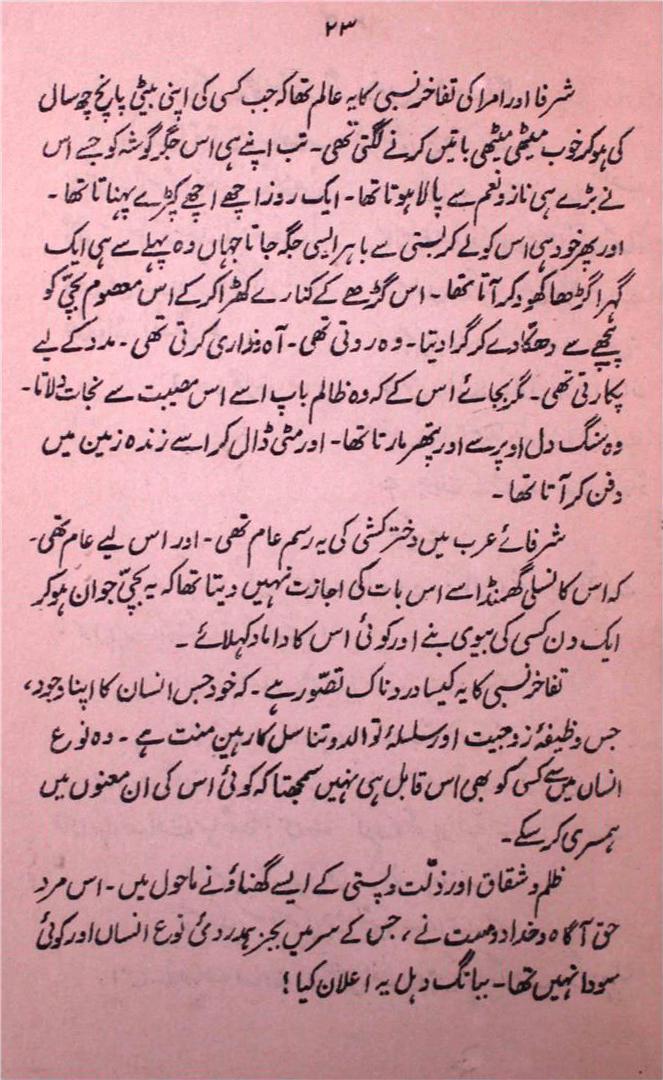 ۲۳
شرفا اور امرا کی تفاخر نسبی کا یہ عالم تھا کہ جب کسی کی اپنی بیٹی پانچ چھ سال
کی ہو کر خوب میٹھی میٹھی باتیں کرنے لگتی تھی۔ تب اپنے ہی اس جگر گوشہ کو جسے اس
نے بڑے ہی ناز و نعم سے پالا ہوتا تھا۔ ایک روز اچھے اچھے کپڑے پہناتا تھا۔
اور پھر خود ہی اس کو لے کر بستی سے باہر ایسی جگہ جاتا جہاں وہ پہلے سے ہی ایک
گہرا گڑھا کھود کر آتا تھا۔ اس گڑھے کے کنارے کھڑا کر کے اس معصوم بچی کو
پیچھے سے دھکا دے کر گرا دیتا۔ وہ روتی تھی۔ آہ و زاری کرتی تھی۔ مدد کے لیے
پکارتی تھی۔ مگر بجائے اس کے کہ وہ ظالم باپ اسے اس مصیبت سے نجات دلاتا۔
وہ سنگ دل اوپر سے اور پتھر مارتا تھا۔ اور مٹی ڈال کر اسے زندہ زمین میں
دفن کر آتا تھا۔
شرفائے عرب میں دختر کشی کی یہ رسم عام تھی۔ اور اس لیے عام تھی۔
کہ اس کا نسلی گھمنڈ اسے اس بات کی اجازت نہیں دیتا تھا کہ یہ بچی جوان ہو کر
ایک دن کسی کی بیوی بنے اور کوئی اس کا داماد کہلائے۔
تفاخر نسبی کا یہ کیسا دردناک تصّور ہے۔ کہ خود جس انسان کا اپنا وجود،
جس وظیفۂ زوجیت اور سلسلۂ توالد و تناسل کا رہین منت ہے۔ وہ نوع
انساں میں سے کسی کو بھی اس قابل ہی نہیں سمجھتا کہ کوئی اس کی ان معنوں میں
ہمسری کر سکے۔
ظلم و شقاق اور ذلّت و پستی کے ایسے گھناؤنے ماحول میں۔ اس مرد
حق آگاہ و خدا دوست نے، جس کے سر میں بجز ہمدردئ نوع انساں اور کوئی
سودا نہیں تھا۔ ببانگ دہل یہ اعلان کیا!